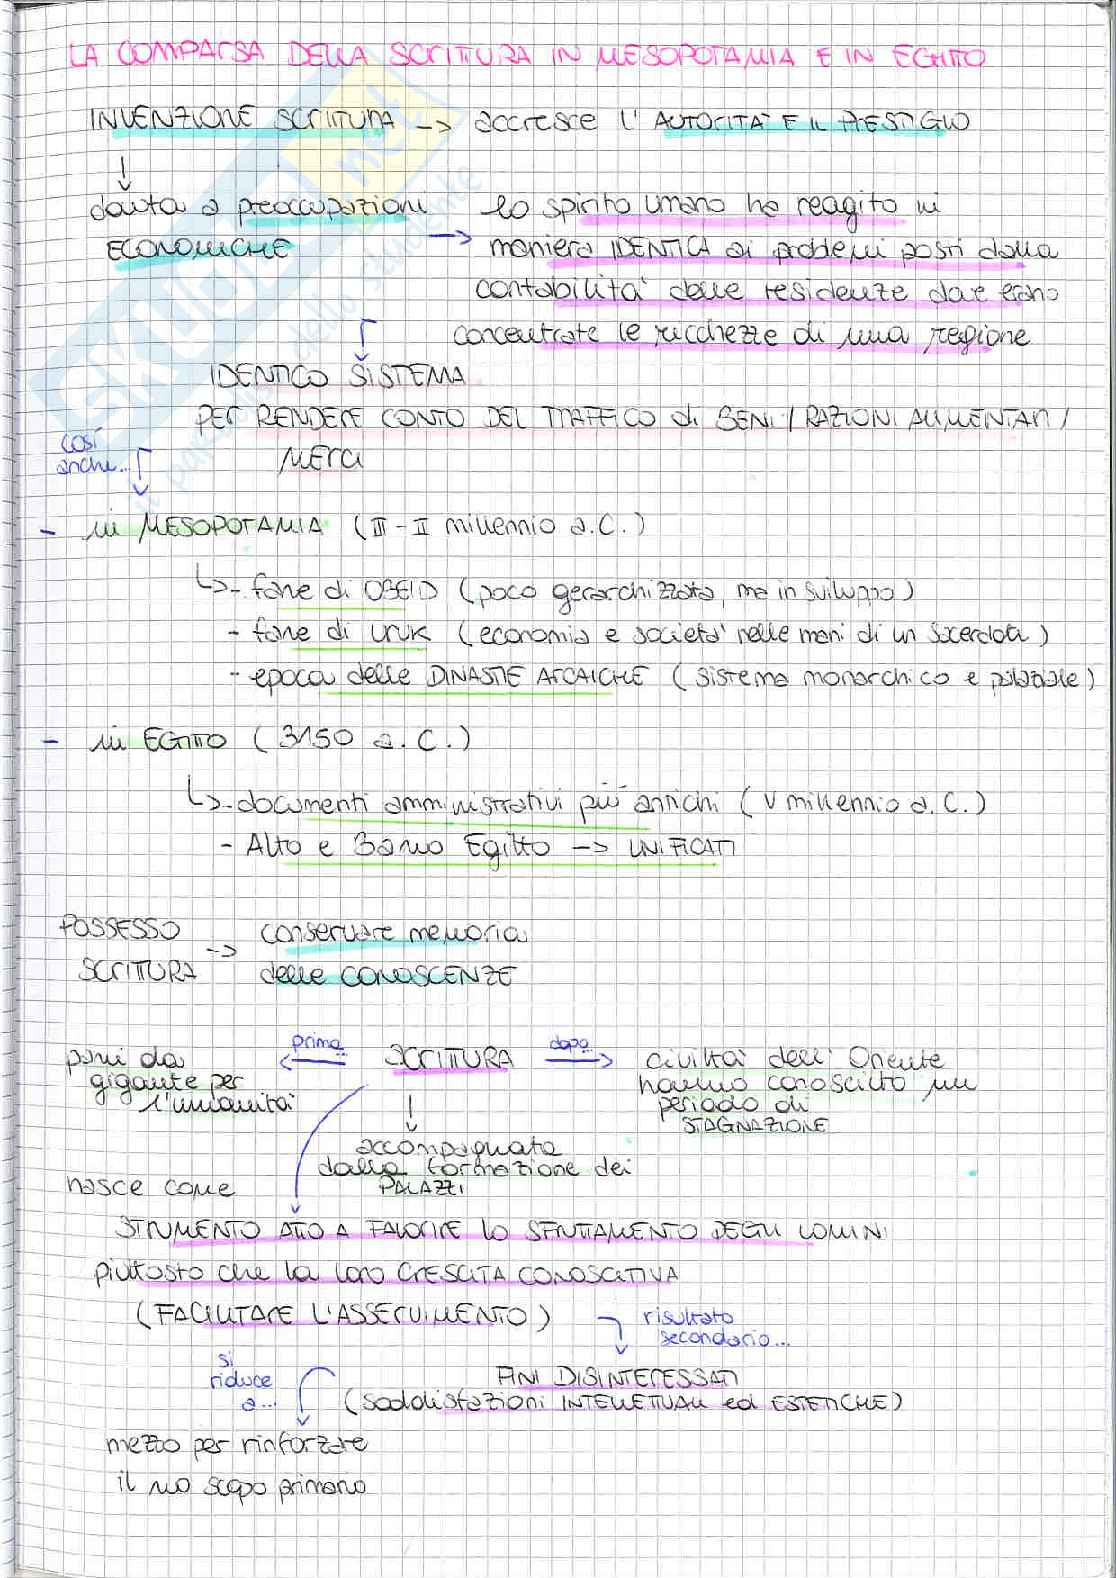 LA COMPARSA DELLA SCRITTURA IN MESOPOTAMIA E IN EGITTO
INVENZIONE SCRITTURA -> accresce l'AUTORITÀ E IL PRESTIGIO
↓
dovuta a preoccupazioni
ECONOMICHE
-> lo spirito umano ha reagito in
maniera IDENTICA ai problemi posti dalla
contabilità delle residenze dove erano
concentrate le ricchezze di una regione
IDENTICO SISTEMA
PER RENDERE CONTO DEL TRAFFICO di BENI / RAZIONI ALIMENTARI /
MERCI
così
anche...
- in MESOPOTAMIA (III - II millennio a.C.)
↳ - fase di OBEID (poco gerarchizzata, ma in sviluppo)
- fase di URUK (economia e società nelle mani di un sacerdote)
- epoca delle DINASTIE ARCAICHE (sistema monarchico e palaziale)
- in EGITTO (3150 a.C.)
↳ - documenti amministrativi più antichi (V millennio a.C.)
- Alto e Basso Egitto -> UNIFICATI
POSSESSO
SCRITTURA
-> conservare memoria
delle CONOSCENZE
passi da
gigante per
l'umanità
prima...
SCRITTURA
dopo...
civiltà dell'Oriente
hanno conosciuto un
periodo di
STAGNAZIONE
accompagnata
dalla formazione dei
PALAZZI
nasce come
STRUMENTO ATTO A FAVORIRE lo SFRUTTAMENTO DEGLI UOMINI
piuttosto che la loro CRESCITA CONOSCITIVA
(FACILITARE L'ASSERVIMENTO)
risultato
secondario...
FINI DISINTERESSATI
(soddisfazioni INTELLETTUALI ed ESTETICHE)
si
riduce
a...
mezzo per rinforzare
il suo scopo primario
Skuola.net